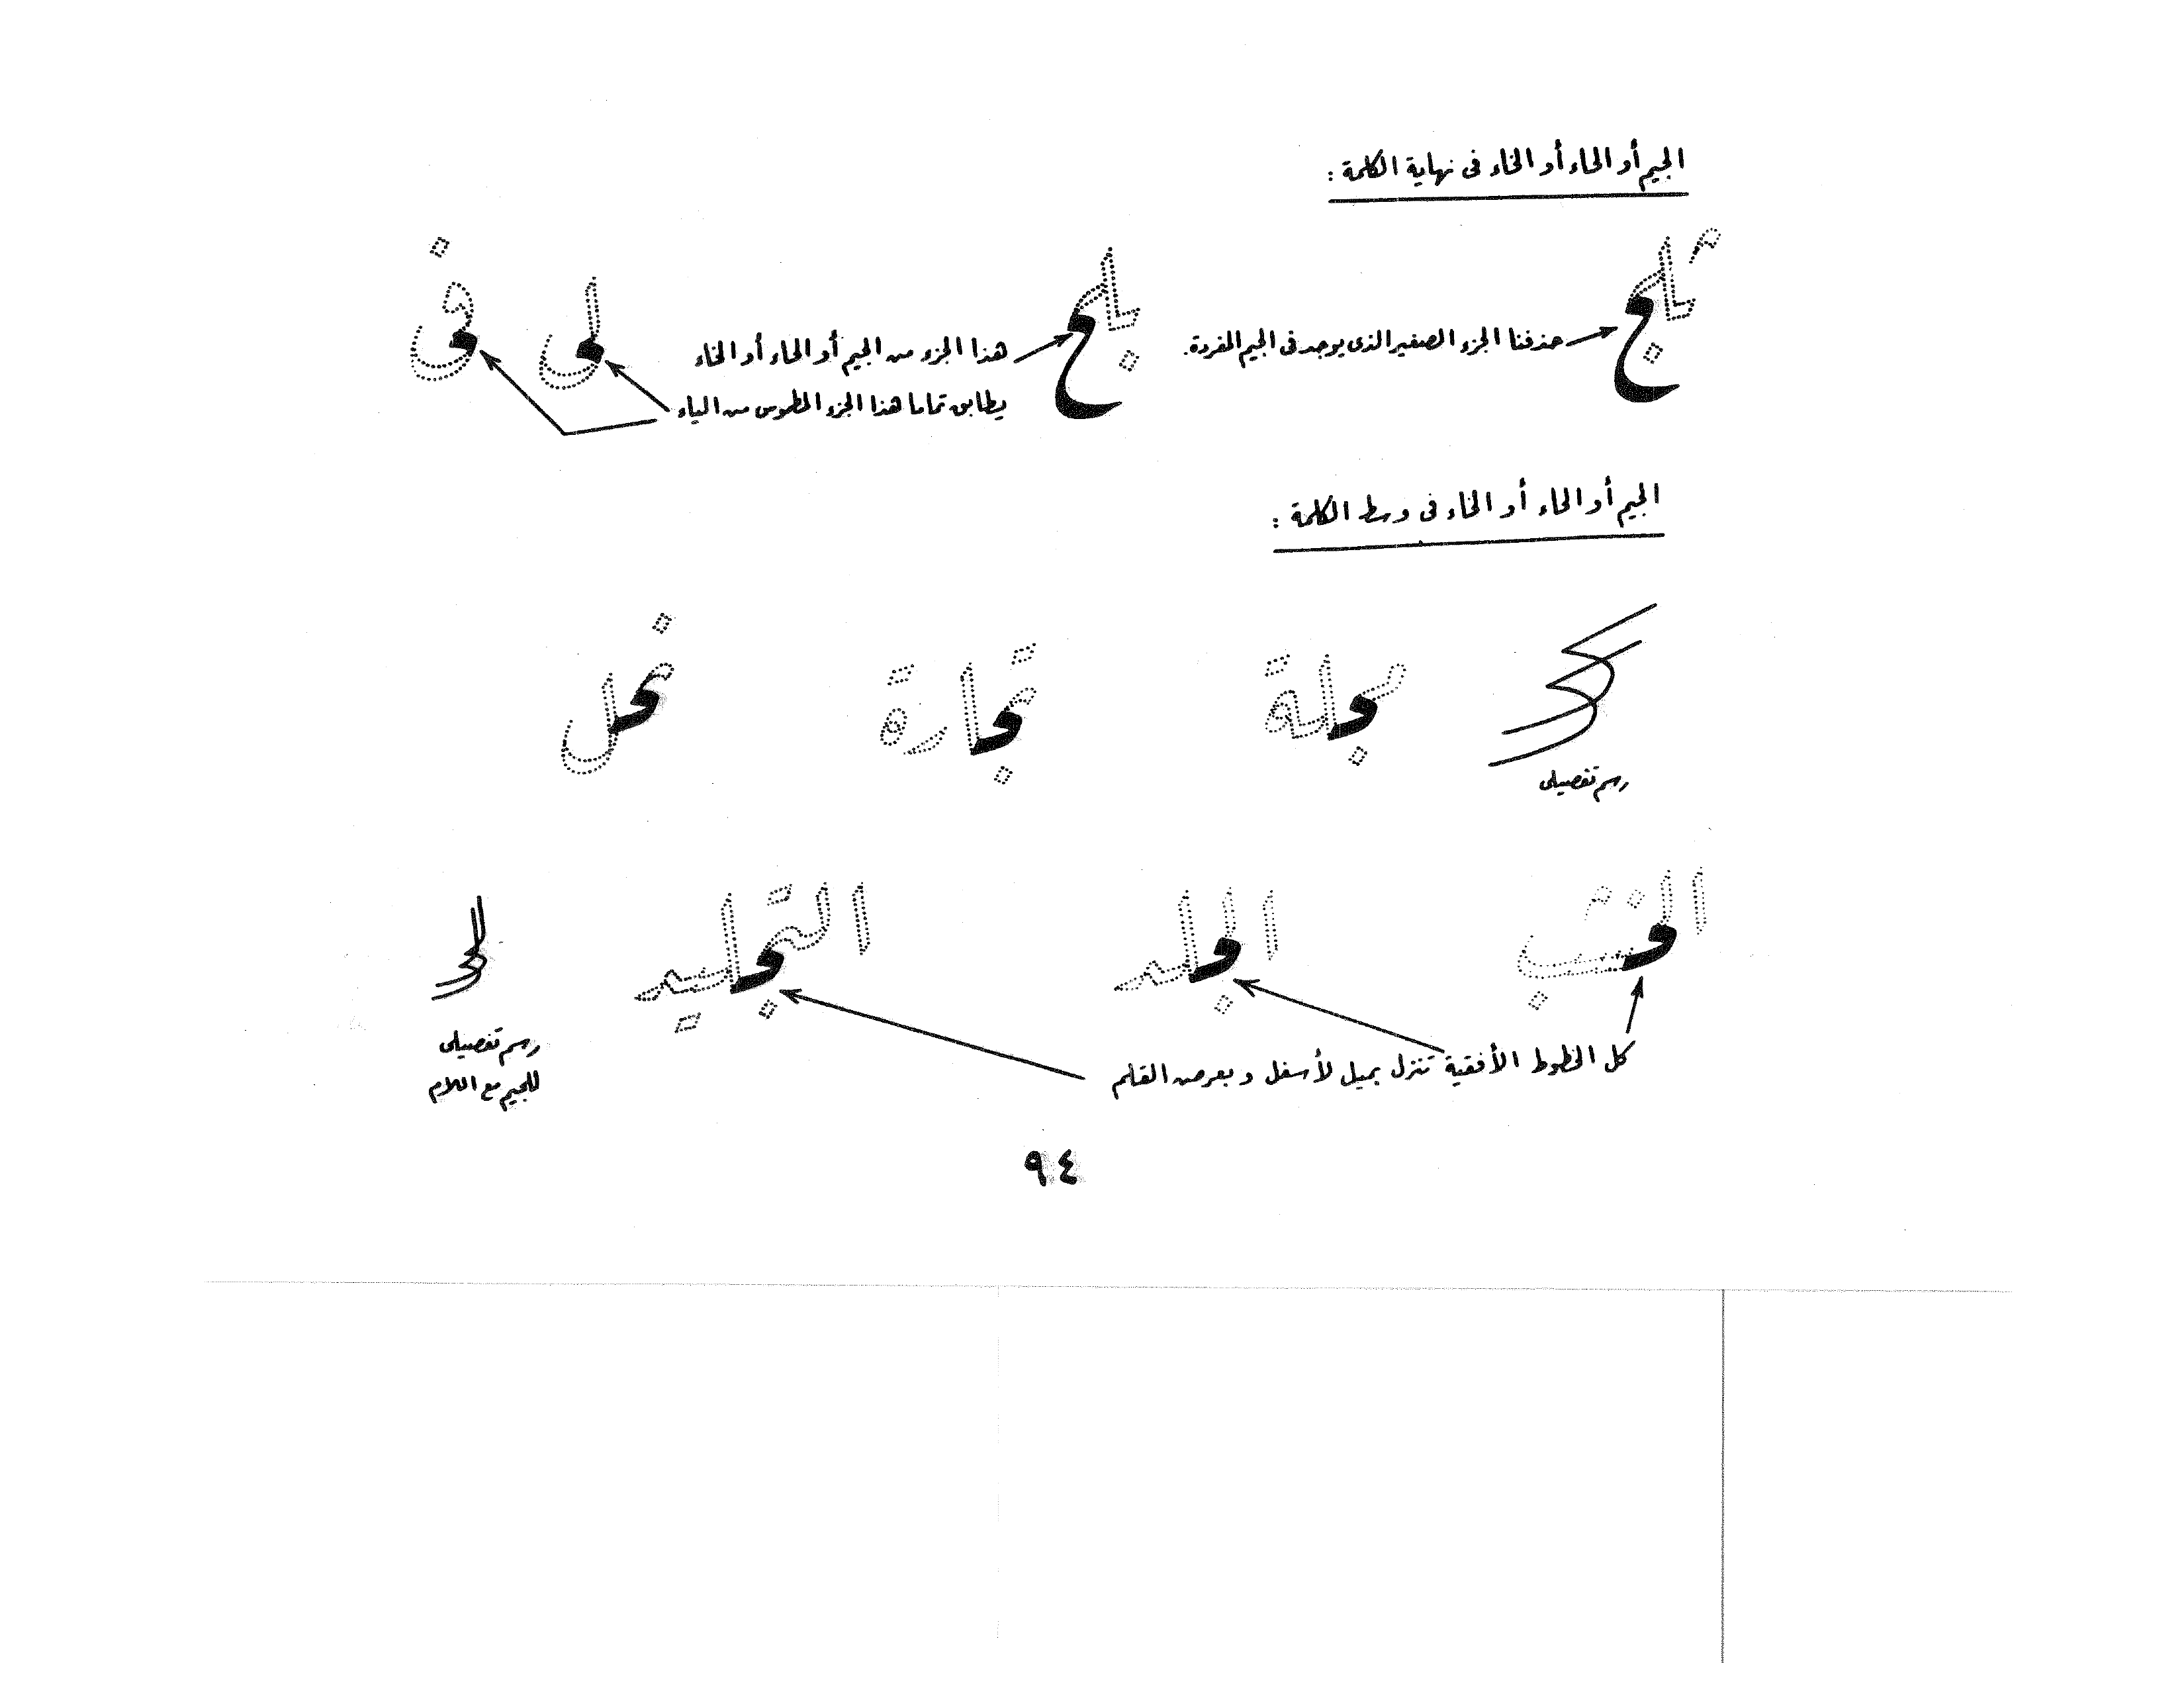 الجيم أو الحاء أو الخاء فى نهاية الكلمة :
ثلج
حذفنا الجزء الصغير الذى يوجد فى الجيم المفردة.
بلج
هذا الجزء من الجيم أو الحاء أو الخاء
يطابق تماما هذا الجزء المطموس من الياء
لى
فى
الجيم أو الحاء أو الخاء فى وسط الكلمة :
رسم تفصيلى
عجلة
تجارة
نحل
الخشب
الجلد
التجليد
كل الخطوط الأفقية تنزل بميل لأسفل وبعرض القلم
رسم تفصيلى
للجيم مع اللام
٩٤